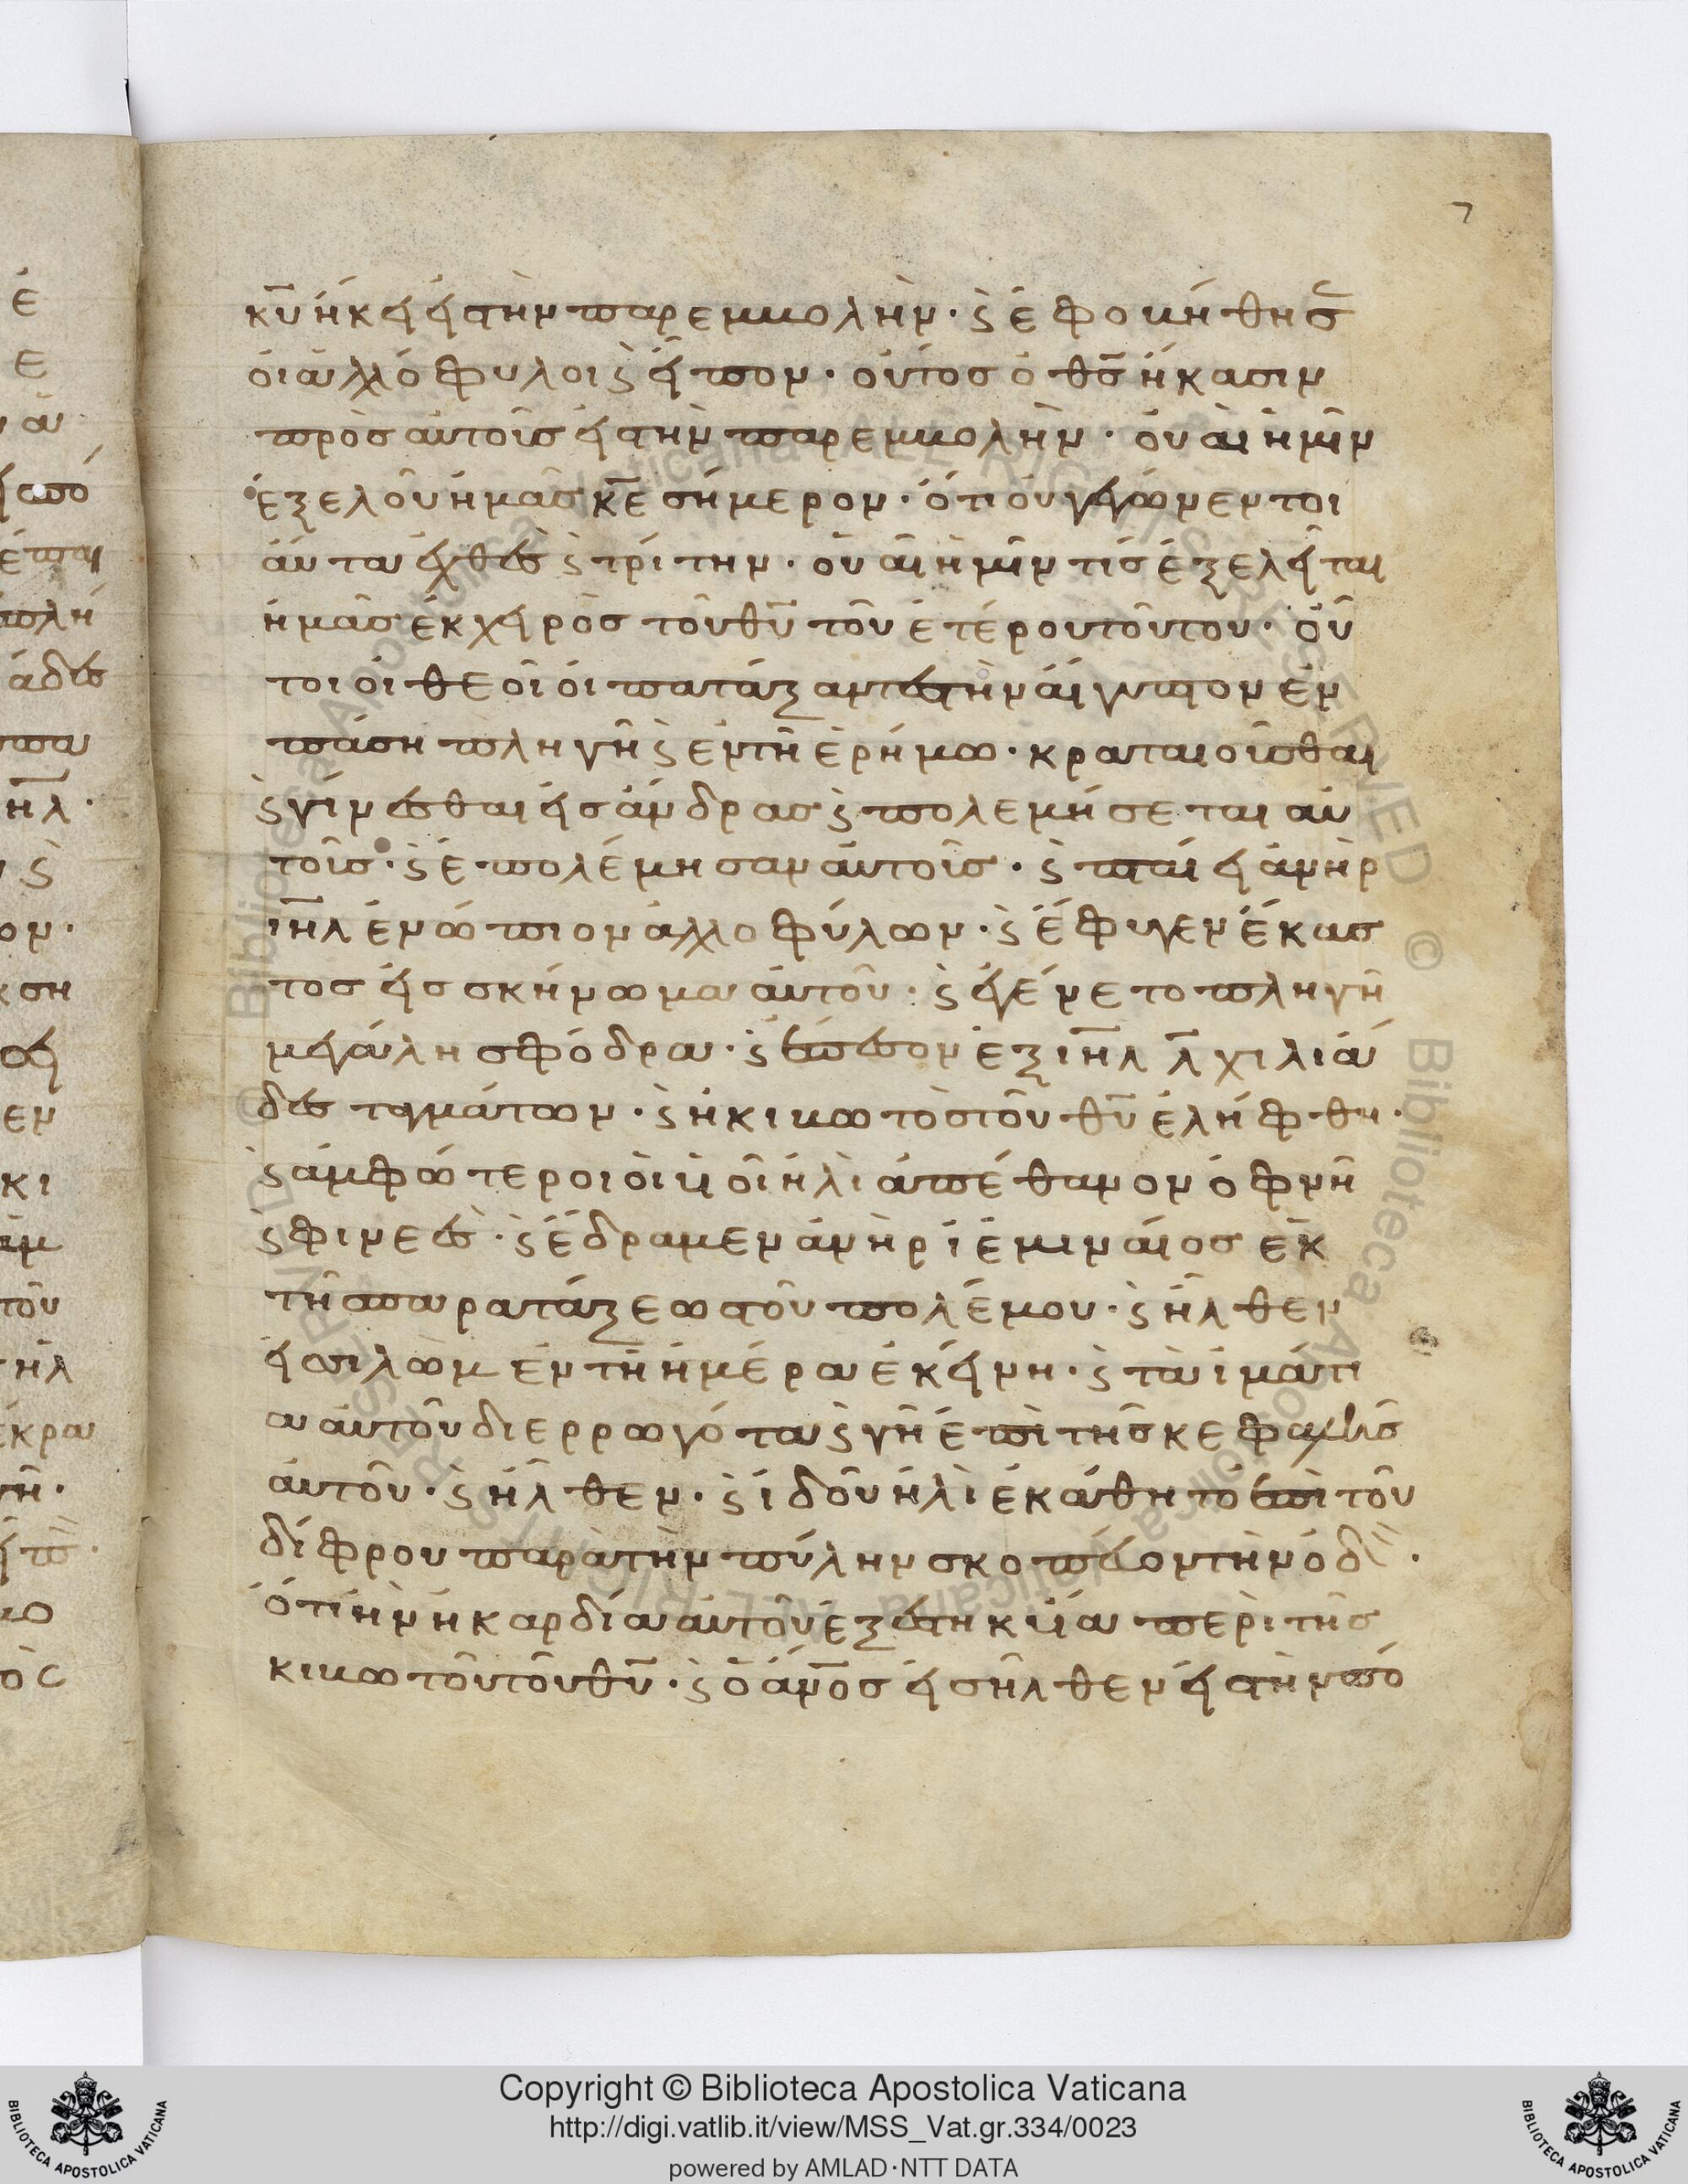 7
κῡ ἥκει εἰς τὴν παρεμβολὴν· ϛ̀ ἐφοβήθησ̄
οἱ ἀλλόφυλοι ϛ̀ εἶπον· οὗτος ὁ θς̄ ἥκασιν
πρὸς αὐτοῖς εἰς τὴν παρεμβολὴν· οὐαὶ ἡμῖν
ἐξελοῦ ἡμᾶς κε̄ σήμερον· ὅτι οὐ γέγωνεν τοι
αύτα ἐχθὲς ϛ̀ τρίτην· οὐαὶ ἡμῖν τίς ἐξελεῖται
ἡμᾶς ἐκ χειρὸς τοῦ θῡ τοῦ ἑτέρου τοῦτου· οὗ
τοι οἱ θεοῖ οἱ πατάξαντες τὴν αἴγυπτον ἐν
πάση πληγῆ ϛ̀ ἐν τῆ ἐρήμω· κραταιοῖσθαι
ϛ̀ γίνεσθαι εἰς ἄνδρας ϛ̀ πολεμήσεται αὐ
τοῖς· ϛ̀ ἐπολέμησαν αὐτοῖς· ϛ̀ πταίει ἀνὴρ
ιη̄λ ἐνώπιον ἀλλοφύλων· ϛ̀ ἔφυγεν ἕκασ
τος εἰς σκήνωμα αὐτοῦ· ϛ̀ ἐγένετο πληγῆ
μεγάλη σφόδρα· ϛ̀ ἔπεσον ἐξ ιη̄λ λ̄ χιλιά
δες ταγμάτων· ϛ̀ ἡ κιβωτὸς τοῦ θῡ ἐλήφθη·
ϛ̀ ἀμφώτεροι οἱ υἱοῖ ἠλὶ ἀπέθανον ὀφνῆ
ϛ̀ φινεὲς· ϛ̀ ἔδραμεν ἀνὴρ ἰεμιναίος ἐκ
τῆς παρατάξεως τοῦ πολέμου· ϛ̀ ἦλθεν
εἰς ιλὼμ ἐν τῆ ἡμέρα ἐκείνη· ϛ̀ τὰ ἱμάτι
α αὐτοῦ διερρωγότα ϛ̀ γῆ ἐπὶ τῆς κεφαλῆς
αὐτοῦ· ϛ̀ ἦλθεν· ϛ̀ ἰδοῦ ἠλὶ ἐκάθητο ἐπὶ τοῦ
δίφρου παρὰ τὴν πύλην σκοπέυον τὴν ὁδὸ·
ὅτι ἦν ἡ καρδία αὐτοῦ ἐξεστηκυία περὶ τῆς
κιβωτοῦ τοῦ θῡ· ϛ̀ ὁ ἄν̄ος εἰσῆλθεν εἰς τὴν πό
Copyright © Biblioteca Apostolica Vaticana
http://digi.vatlib.it/view/MSS_Vat.gr.334/0023
powered by AMLAD·NTT DATA